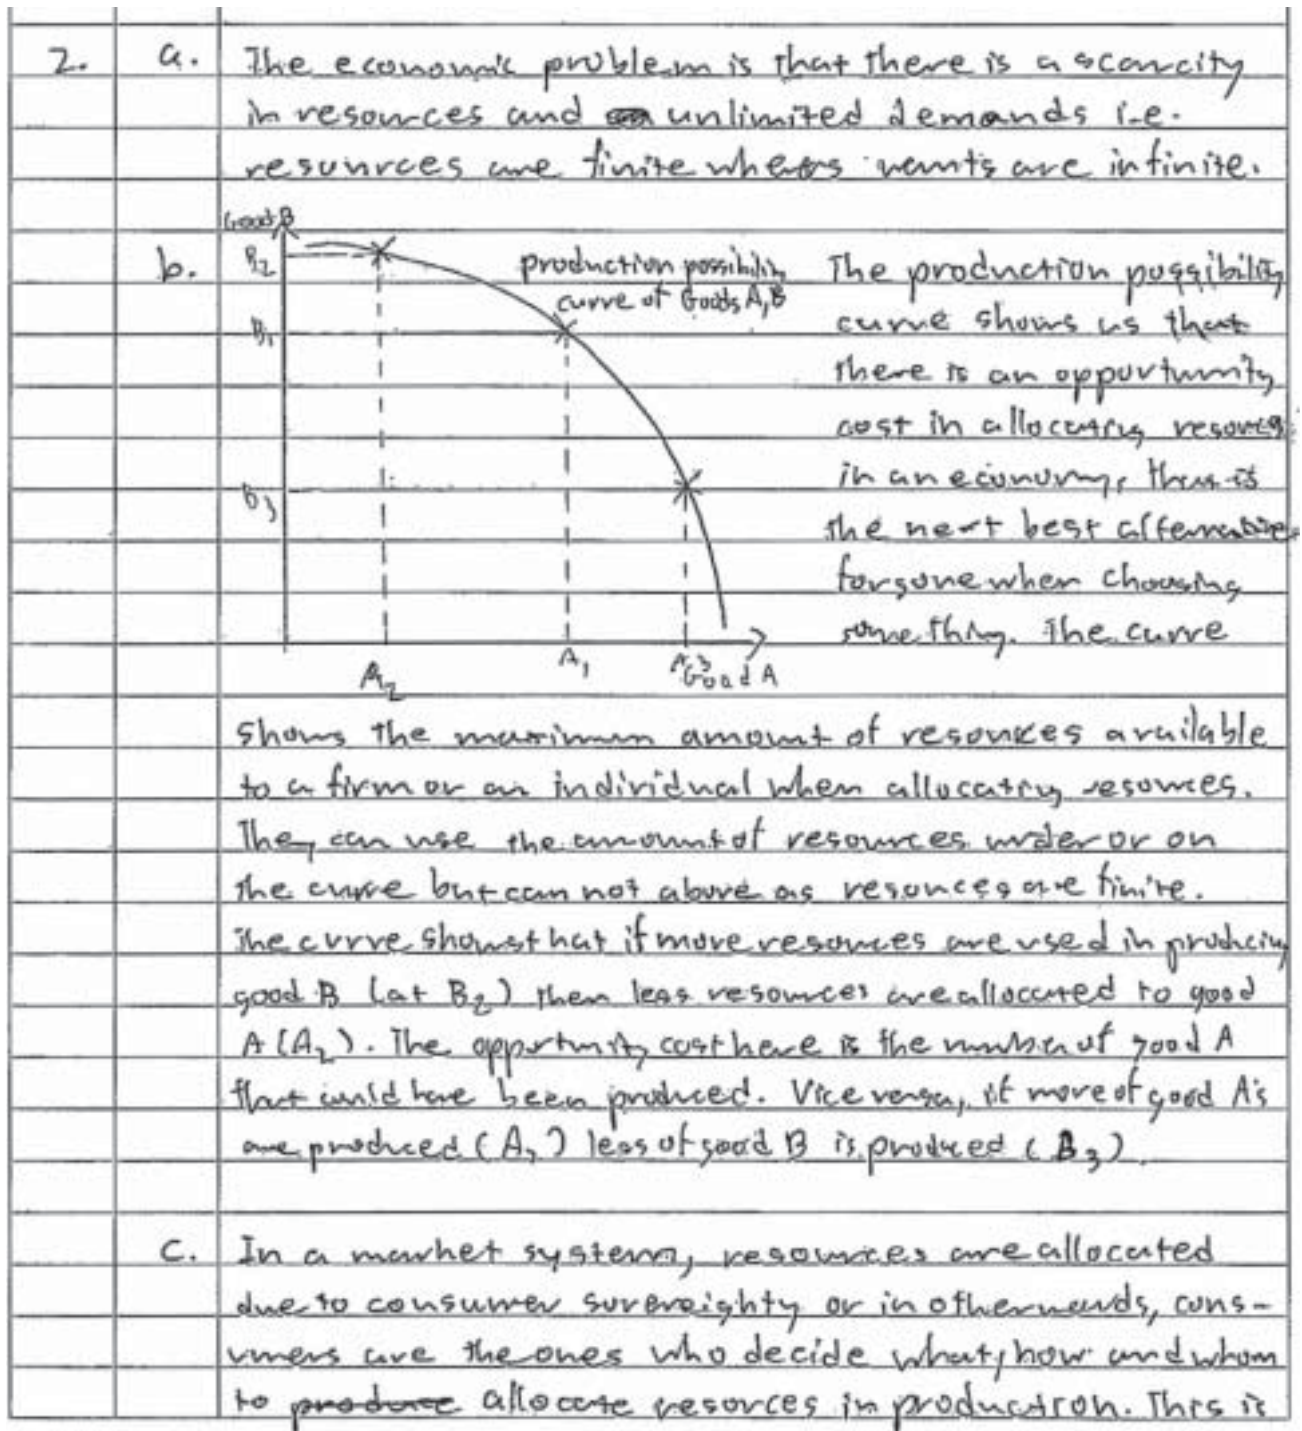 2. a. The economic problem is that there is a scarcity
in resources and unlimited demands i.e.
resources are finite wheras wants are infinite.
Good B
b. B2 production possibility The production possibility
curve of Goods A,B curve shows us that
B1
there is an opportunity
cost in allocating resources
B3 in an economy, that is
the next best alternative
forgone when choosing
something. The curve
A2 A1 A3 Good A
shows the maximum amount of resources available
to a firm or an individual when allocating resources.
They can use the amount of resources under or on
the curve but can not above as resources are finite.
The curve shows that if more resources are used in producing
good B (at B2) then less resources are allocated to good
A (A2). The opportunity cost here is the number of good A
that could have been produced. Vice versa, if more of good A's
are produced (A3) less of good B is produced (B3).
c. In a market system, resources are allocated
due to consumer sovereighty or in other words, cons-
umers are the ones who decide what, how and whom
to produce allocate resorces in production. This is